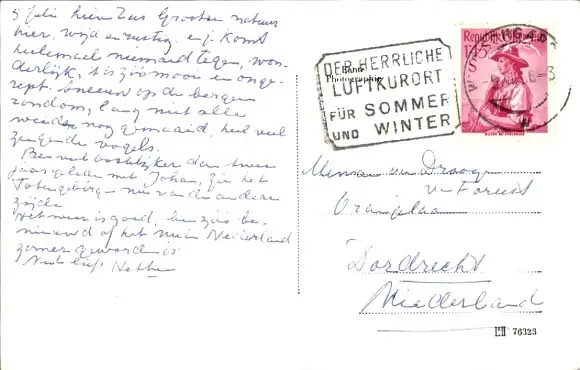 5 Juli hier Zus Grooten natuur
hier, wijd en rustig, en je komt
heelemaal niemand tegen, won-
derlijk, 't is zóó mooi en onge-
rept. Sneeuw op de bergen
rondom, lang niet alle
weiden nog gemaaid, heel veel
zingende vogels.
Ben veel oostelijker dan twee
jaar geleden met Johan, zie het
Totengebirge nu van de andere
zijde
Het weer is goed, ben zóó be-
nieuwd of het nu in Nederland
zomer geworden is.
Veel liefs
DER HERRLICHE
LUFTKURORT
FÜR SOMMER
UND WINTER
Echte
Photographie
Republik Österreich
1·45 S
Mevrouw van Drooge
v. Foreest
Oranjelaan
Dordrecht
Niederland
76323